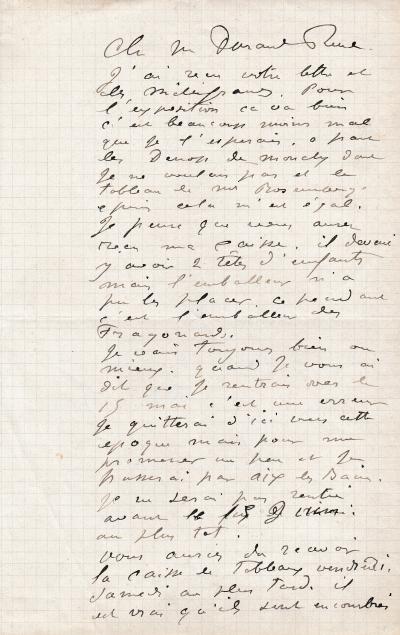 Cher Mr Durand Ruel.
J'ai reçu votre lettre et
les mille francs. Pour
l'exposition ça va bien
c'est beaucoup moins mal
que je l'espérais. a part
les de dont
je ne voulais pas et le
tableau de mr Rosemberg
epuis cela m'est égal.
Je pense que vous avez
reçu ma caisse. il devait
y avoir 2 têtes d'enfants
mais l'emballeur n'a
pu les placer. ce pendant
c'est l'emballeur des
Fragonards.
Je vais toujours bien ou
mieux. quand je vous ai
dit que je rentrais vers le
15 mai c'est une erreur
je quitterai d'ici vers cette
epoque mais pour me
promener un peu et je
passerai par aix les Bains.
je ne serai pas rentré
avant le
au plus tot.
vous auriez du recevoir
la caisse de tableaux vendredi.
samedi au plus tard. il
est vrai qu'ils sont encombrés